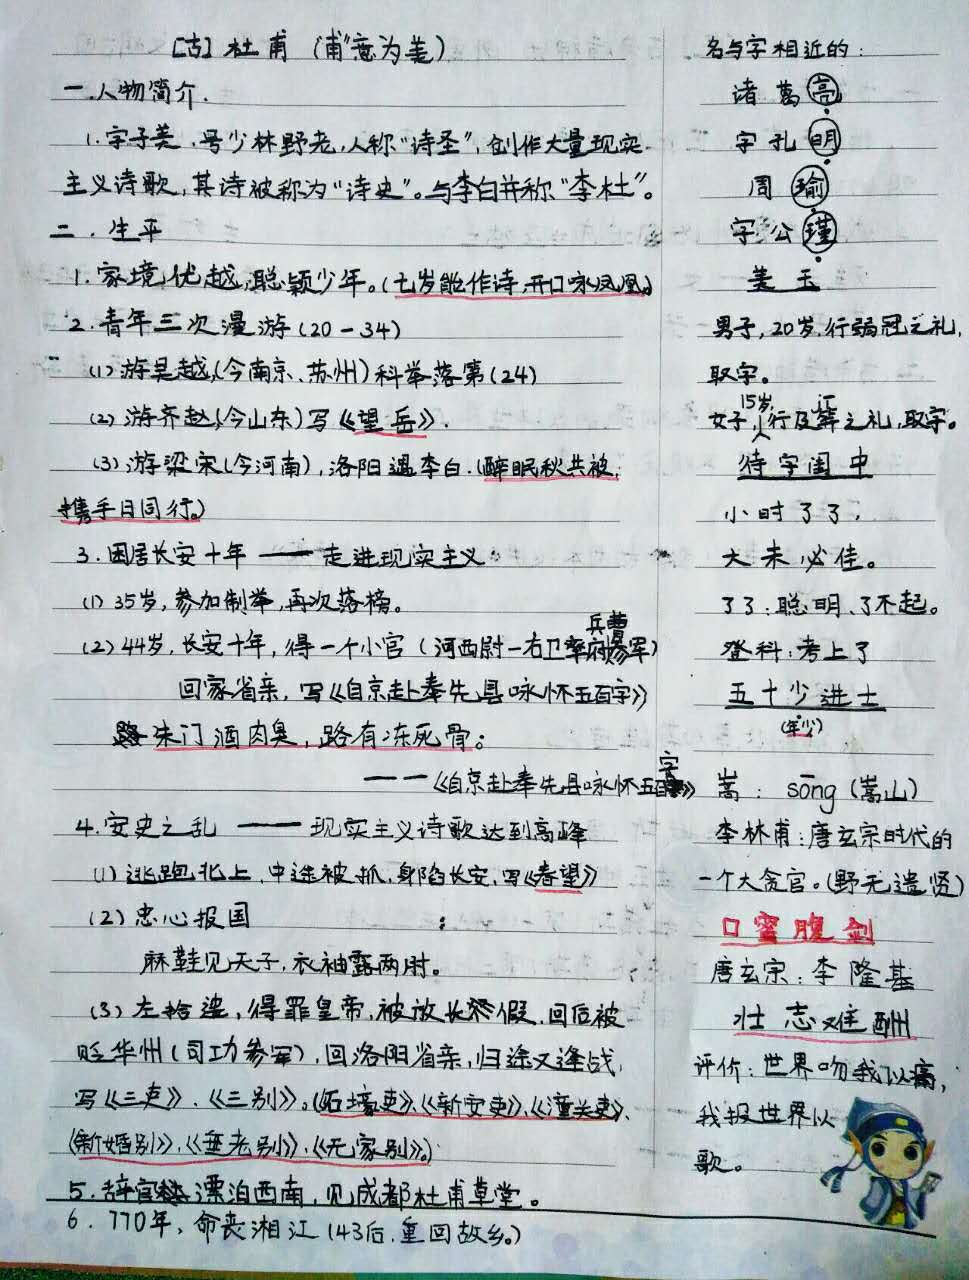 [古] 杜甫 (甫"意为美)
一.人物简介.
1.字子美、号少林野老,人称"诗圣",创作大量现实
主义诗歌,其诗被称为"诗史"。与李白并称"李杜"。
二.生平
1.家境优越,聪颖少年。(七岁能作诗,开口咏凤凰。)
2.青年三次漫游(20-34)
(1)游吴越(今南京、苏州)科举落第(24)
(2)游齐赵(今山东)写《望岳》.
(3)游梁宋(今河南),洛阳遇李白.(醉眠秋共被,
携手日同行。)
3.困居长安十年——走进现实主义
(1)35岁,参加制举,再次落榜。
(2)44岁,长安十年,得一个小官(河西尉-右卫率府兵曹参军)
回家省亲,写《自京赴奉先县咏怀五百字》
朱门酒肉臭,路有冻死骨。
——《自京赴奉先县咏怀五百字》
4.安史之乱——现实主义诗歌达到高峰
(1)逃跑北上,中途被抓,身陷长安,写《春望》
(2)忠心报国
麻鞋见天子,衣袖露两肘。
(3)左拾遗,得罪皇帝,被放长假,回后被
贬华州(司功参军),回洛阳省亲,归途又逢战,
写《三吏》、《三别》。(《石壕吏》、《新安吏》、《潼关吏》、
《新婚别》、《垂老别》、《无家别》。)
5.辞官漂泊西南,见成都杜甫草堂。
6.770年,命丧湘江(43后,重回故乡。)
名与字相近的:
诸葛亮
字孔明
周瑜
字公瑾
美玉
男子,20岁,行弱冠之礼,
取字。
女子,15岁,行及笄之礼,取字。
待字闺中
小时了了,
大未必佳。
了了:聪明、了不起。
登科:考上了
五十少进士
(年少)
嵩:sōng(嵩山)
李林甫:唐玄宗时代的
一个大贪官。(野无遗贤)
口蜜腹剑
唐玄宗:李隆基
壮志难酬
评价:世界吻我以痛,
我报世界以
歌。